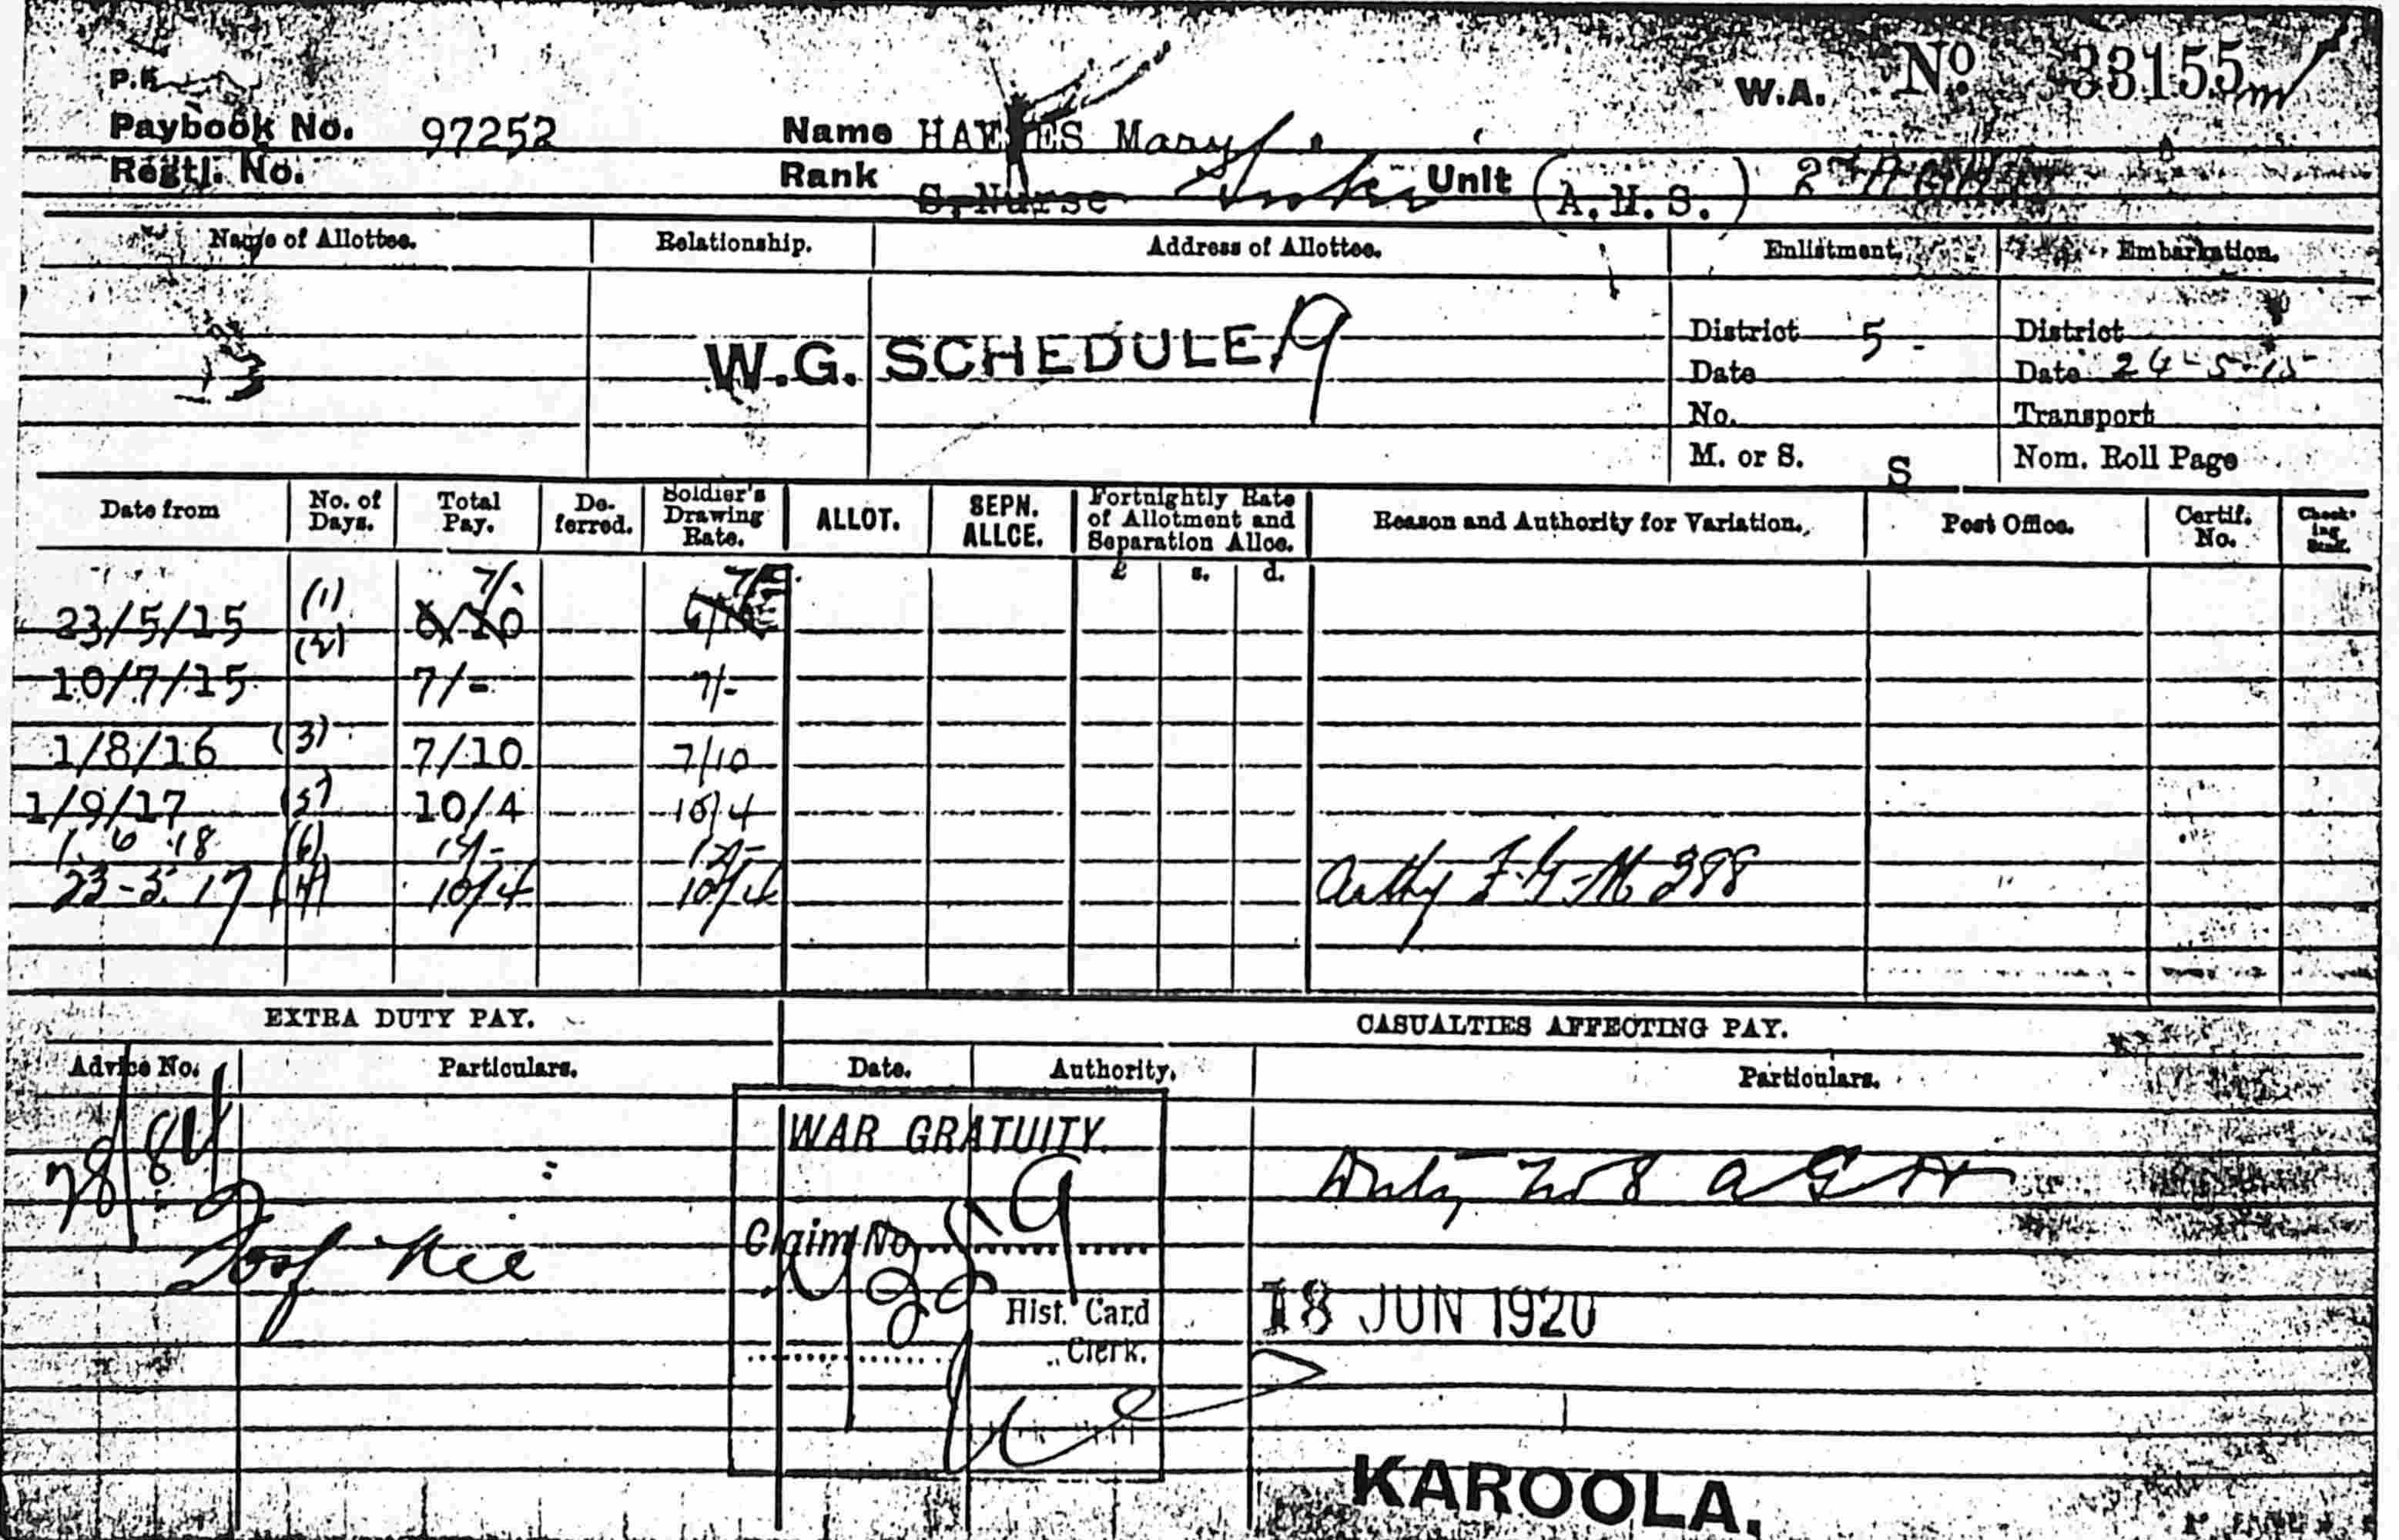 W.A. No 33155
P.F.
Paybook No. 97252 Name HAYES Mary
Regtl. No. Rank S/Nurse Sister Unit (A.H.S.)
Name of Allottee. Relationship. Address of Allottee. Enlistment. Embarkation.
W.G. SCHEDULE 9
District 5 District
Date Date 24-5-15
No. Transport
M. or S. S Nom. Roll Page
Date from No. of Days. Total Pay. De-ferred. Soldier's Drawing Rate. ALLOT. SEPN. ALLCE. Fortnightly Rate of Allotment and Separation Allce. Reason and Authority for Variation. Post Office. Certif. No. Check-ing Staff.
£ s. d.
7/- 7/-
23/5/15 (1) 6/10 6/10
(2)
10/7/15 7/- 7/-
1/8/16 (3) 7/10 7/10
1/9/17 (5) 10/4 10/4
1.6.18 (6)
23-3.17 (4) 10/4 10/4 Authy F.G.M 398
EXTRA DUTY PAY. CASUALTIES AFFECTING PAY.
Advice No. Particulars. Date. Authority. Particulars.
WAR GRATUITY.
Duty No 8 AGH
Claim No.
Hist. Card
Clerk.
18 JUN 1920
KAROOLA.